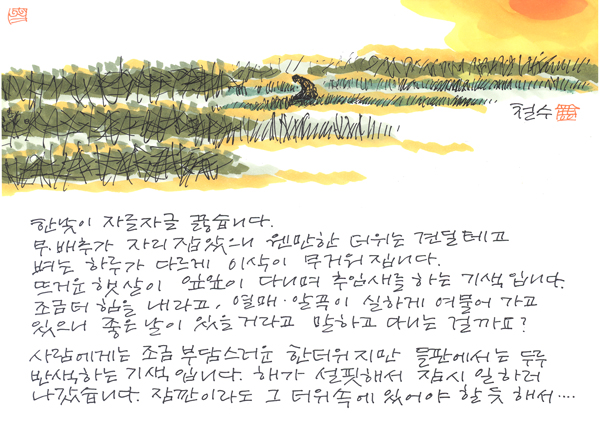 철수
한낮이 자글자글 끓습니다.
무·배추가 자리 잡았으니 웬만한 더위는 견딜테고
벼는 하루가 다르게 이삭이 무거워집니다.
뜨거운 햇살이 앞앞이 다니며 추임새를 하는 기색입니다.
조금 더 힘을 내라고, 열매·알곡이 실하게 여물어 가고
있으니 좋은 날이 있을거라고 말하고 다니는 걸까요?
사람에게는 조금 부담스러운 한더위지만 들판에서는 두루
반색하는 기색입니다. 해가 설핏해서 잠시 일하러
나갔습니다. 잠깐이라도 그 더위속에 있어야 할 듯 해서····